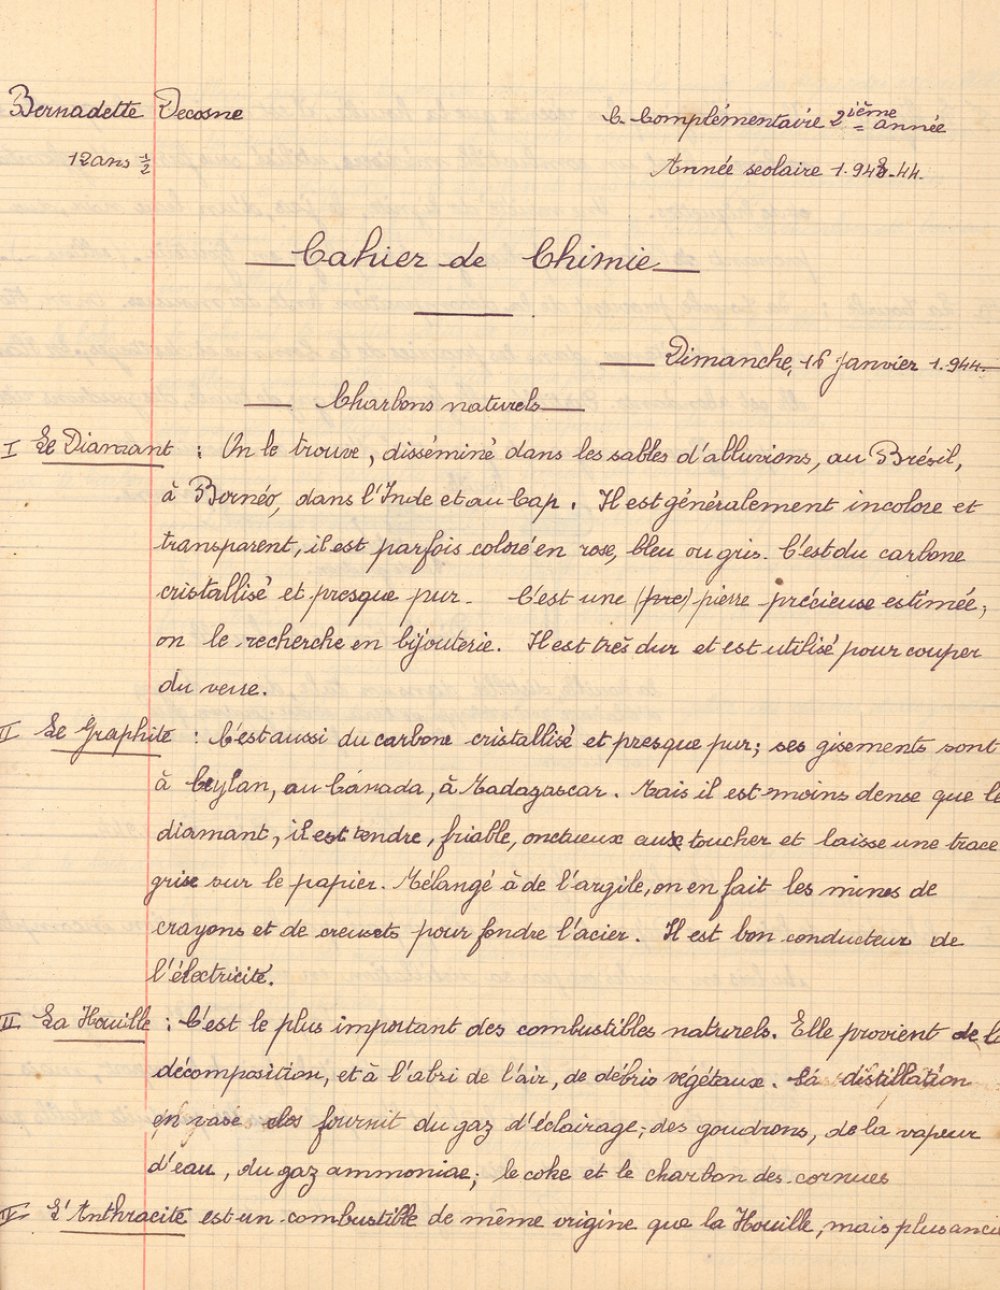 Bernadette Decosne
C. Complémentaire 2ième année
12 ans 1/2
Année scolaire 1.943-44.
Cahier de Chimie
Dimanche, 16 Janvier 1.944.
Charbons naturels
I Le Diamant : On le trouve, disséminé dans les sables d'alluvions, au Brésil,
à Bornéo, dans l'Inde et au Cap. Il est généralement incolore et
transparent, il est parfois coloré en rose, bleu ou gris. C'est du carbone
cristallisé et presque pur. C'est une (pre) pierre précieuse estimée,
on le recherche en bijouterie. Il est très dur et est utilisé pour couper
du verre.
II Le Graphite : C'est aussi du carbone cristallisé et presque pur; ses gisements sont
à Ceylan, au Canada, à Madagascar. Mais il est moins dense que le
diamant, il est tendre, friable, onctueux aux toucher et laisse une trace
grise sur le papier. Mélangé à de l'argile, on en fait les mines de
crayons et de creusets pour fondre l'acier. Il est bon conducteur de
l'électricité.
La Houille : C'est le plus important des combustibles naturels. Elle provient de la
décomposition, et à l'abri de l'air, de débris végétaux. La distillation
en vase clos fournit du gaz d'éclairage; des goudrons, de la vapeur
d'eau, du gaz ammoniac; le coke et le charbon des cornues
L'Anthracite est un combustible de même origine que la Houille, mais plus ancie